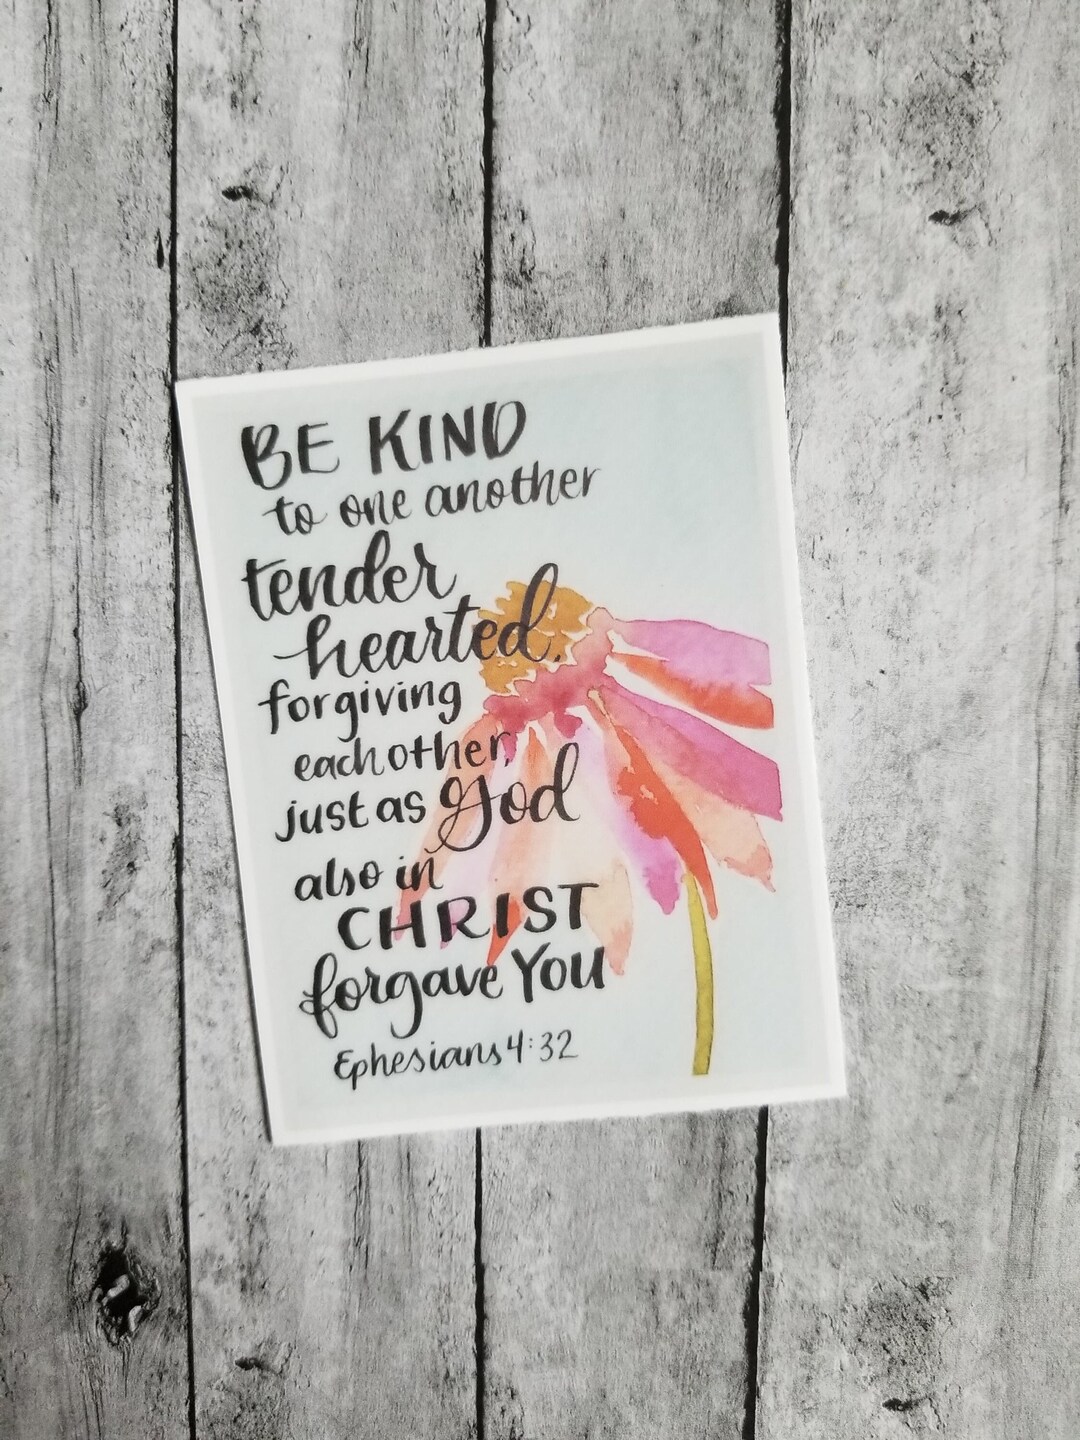 BE KIND
to one another
tender
hearted,
forgiving
each other,
just as God
also in
CHRIST
forgave You
Ephesians 4:32